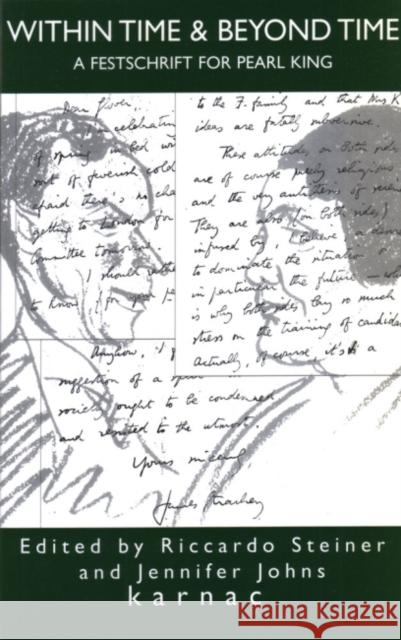 WITHIN TIME & BEYOND TIME
A FESTSCHRIFT FOR PEARL KING
Dear Glover,
in celebrating
of spring in bed
sort of feverish cold
afraid there's no cha
getting to London for
Committee tomorrow.
I should rathe
to know (for
to the F. family and that Mrs K
ideas are fatally subversive.
These attitudes, on both sides
are of course purely religious
and the very antithesis of
They are also (on both sides)
infused by, I believe, a desire
to dominate the situation
in particular the future
is why both sides lay so much
stress on the training of candida
Actually, of course, it's a
Anyhow,
suggestion of a
society ought to be condemned
and resisted to the utmost.
Yours sincerely
James Strachey
Edited by Riccardo Steiner
and Jennifer Johns
karnac